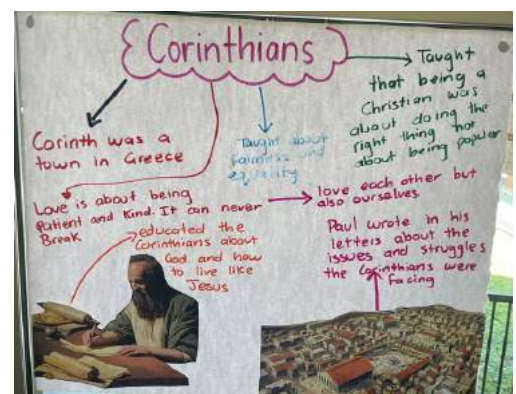 Corinthians
Taught
that being a
Christian was
about doing the
right thing not
about being popular
Corinth was a
town in Greece
Taught about
fairness and
equality
Love is about being
Patient and Kind. It can never
Break
love each other but
also ourselves
educated the
Corinthians about
God and how
to live like
Jesus
Paul wrote in his
letters about the
issues and struggles
the Corinthians were
facing